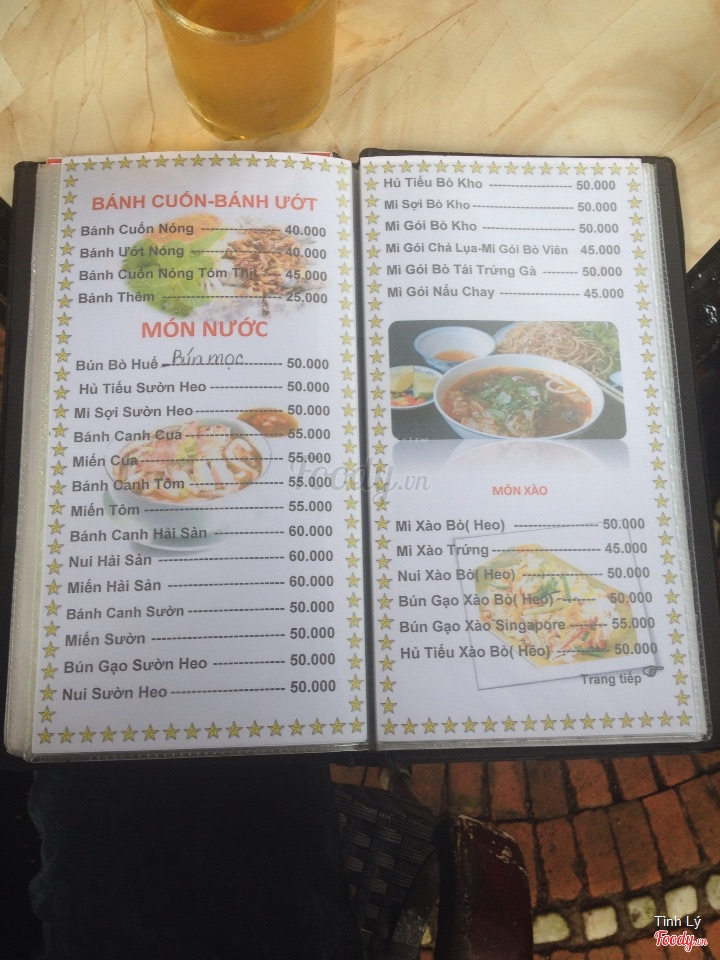 BÁNH CUỐN-BÁNH ƯỚT
Bánh Cuốn Nóng ---------------- 40.000
Bánh Ướt Nóng ------------------ 40.000
Bánh Cuốn Nóng Tôm Thịt ----- 45.000
Bánh Thêm ---------------------- 25.000
MÓN NƯỚC
Bún Bò Huế Bún mọc ---------------- 50.000
Hủ Tiếu Sườn Heo --------------- 50.000
Mì Sợi Sườn Heo ----------------- 50.000
Bánh Canh Cua ------------------- 55.000
Miến Cua -------------------------- 55.000
Bánh Canh Tôm ------------------ 55.000
Miến Tôm ------------------------- 55.000
Bánh Canh Hải Sản ------------- 60.000
Nui Hải Sản ----------------------- 60.000
Miến Hải Sản --------------------- 60.000
Bánh Canh Sườn ----------------- 50.000
Miến Sườn ------------------------ 50.000
Bún Gạo Sườn Heo -------------- 50.000
Nui Sườn Heo -------------------- 50.000
Hủ Tiếu Bò Kho ---------------- 50.000
Mì Sợi Bò Kho -------------------- 50.000
Mì Gói Bò Kho ------------------- 50.000
Mì Gói Chả Lụa-Mì Gói Bò Viên 45.000
Mì Gói Bò Tái Trứng Gà -------- 50.000
Mì Gói Nấu Chay ---------------- 45.000
MÓN XÀO
Mì Xào Bò( Heo) ----------------- 50.000
Mì Xào Trứng --------------------- 45.000
Nui Xào Bò( Heo) ---------------- 50.000
Bún Gạo Xào Bò( Heo) -------- 50.000
Bún Gạo Xào Singapore -------- 55.000
Hủ Tiếu Xào Bò( Heo) ----------- 50.000
Trang tiếp
Foody.vn
Tinh Lý
Foody.vn